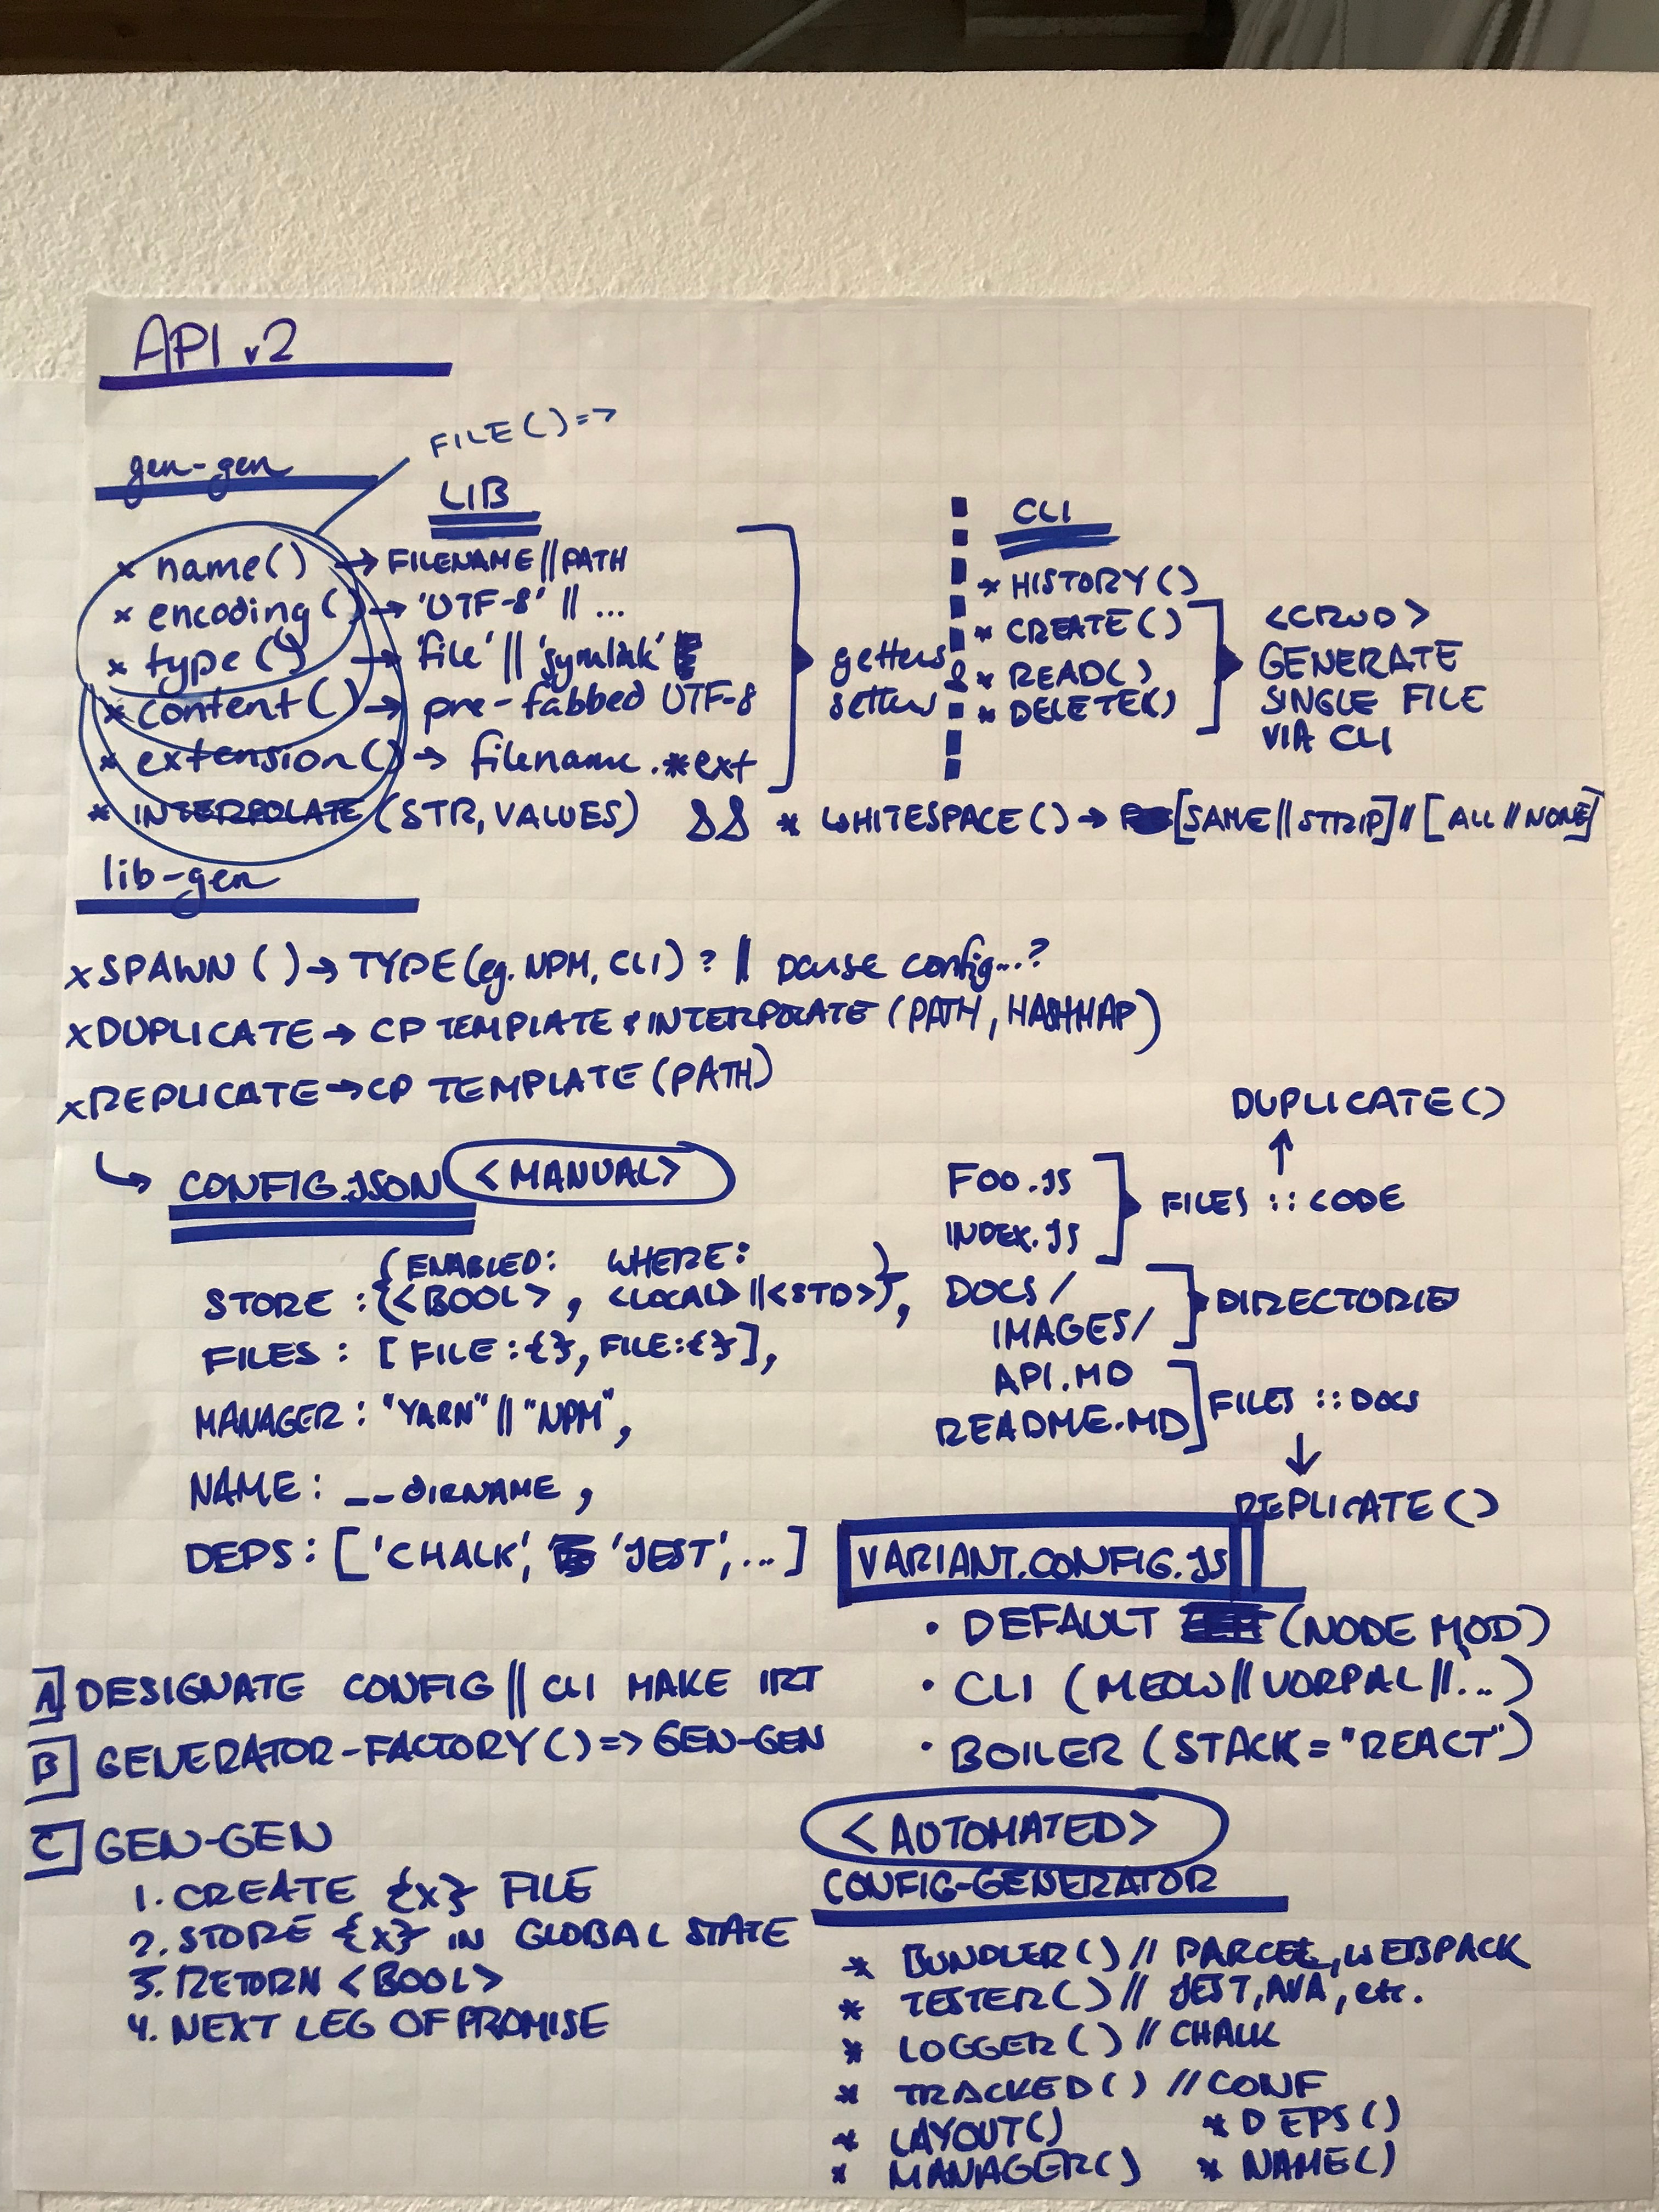 API v2
FILE()=>
gen-gen
LIB
* name() → FILENAME || PATH
* encoding() → 'UTF-8' || ...
* type() → 'file' || 'symlink'
* content() → pre-fabbed UTF-8
* extension() → filename.*ext
getters
setters
CLI
* HISTORY()
* CREATE()
& * READ()
* DELETE()
<CRUD>
GENERATE
SINGLE FILE
VIA CLI
* INTERPOLATE (STR, VALUES) && * WHITESPACE() → [SAME || STRIP] || [ALL || NONE]
lib-gen
x SPAWN () → TYPE (eg. NPM, CLI) ? || parse config...?
x DUPLICATE → CP TEMPLATE & INTERPOLATE (PATH, HASHMAP)
x REPLICATE → CP TEMPLATE (PATH)
↳ CONFIG.JSON <MANUAL>
(ENABLED: WHERE: )
STORE : {<BOOL>, <LOCAL> || <STD>},
FILES : [ FILE:{}, FILE:{} ],
MANAGER : "YARN" || "NPM",
NAME : __DIRNAME ,
DEPS : ['CHALK', 'JEST', ...]
DUPLICATE()
↑
FOO.JS
INDEX.JS
FILES :: CODE
DOCS/
IMAGES/
DIRECTORIES
API.MD
README.MD
FILES :: DOCS
↓
REPLICATE()
VARIANT.CONFIG.JS
• DEFAULT (NODE MOD)
• CLI (MEOW || VORPAL || ...)
• BOILER (STACK = "REACT")
A DESIGNATE CONFIG || CLI MAKE IRT
B GENERATOR-FACTORY() => GEN-GEN
C GEN-GEN
1. CREATE {x} FILE
2. STORE {x} IN GLOBAL STATE
3. RETURN <BOOL>
4. NEXT LEG OF PROMISE
<AUTOMATED>
CONFIG-GENERATOR
* BUNDLER() // PARCEL, WEBPACK
* TESTER() // JEST, AVA, etc.
* LOGGER() // CHALK
* TRACKED() // CONF
* LAYOUT() * DEPS()
* MANAGER() * NAME()